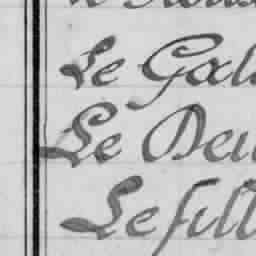 Le Gal
Le Deu
Lefill